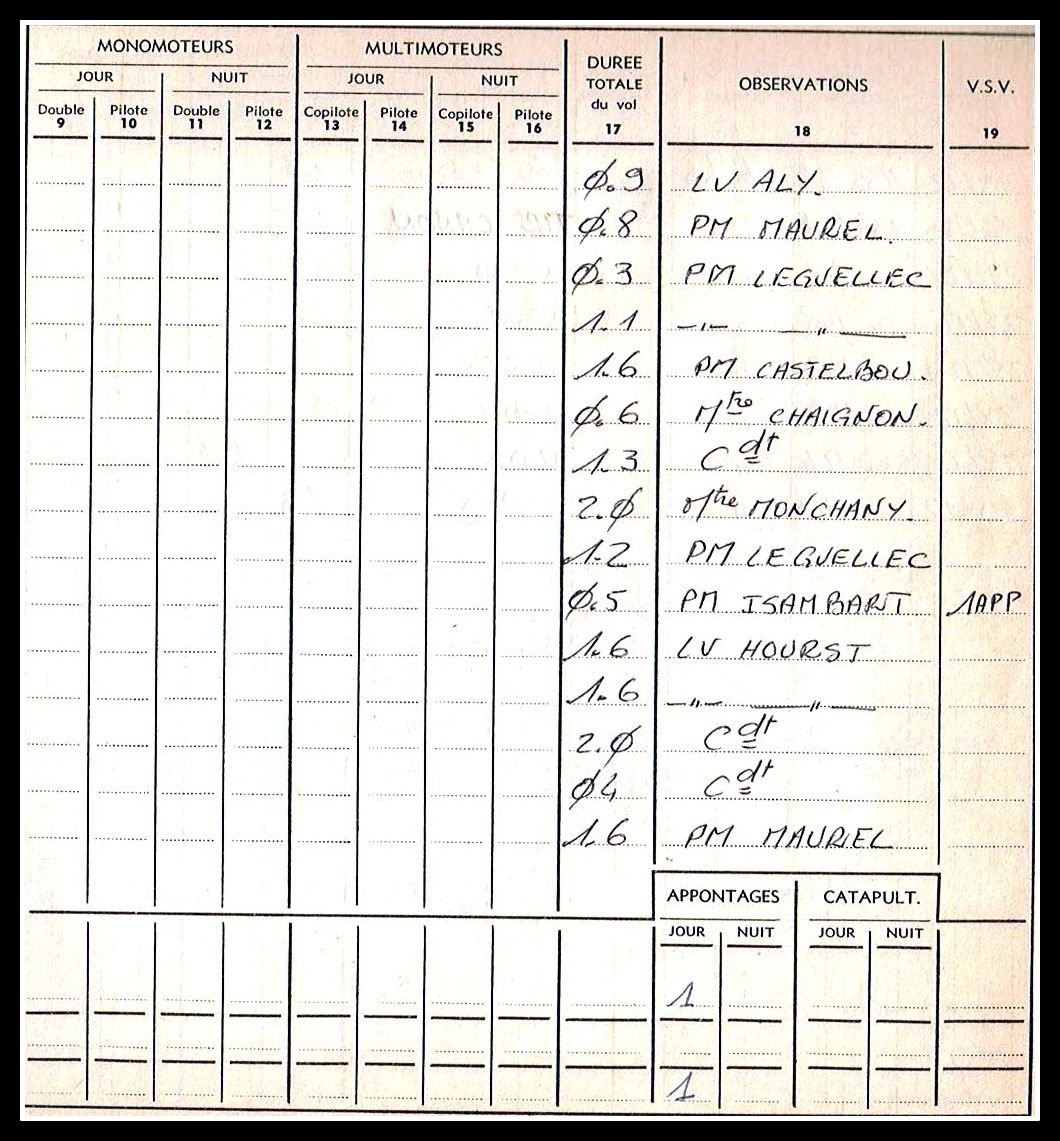 MONOMOTEURS MULTIMOTEURS DUREE TOTALE du vol OBSERVATIONS V.S.V.
JOUR NUIT JOUR NUIT
Double Pilote Double Pilote Copilote Pilote Copilote Pilote
9 10 11 12 13 14 15 16 17 18 19
Ø.9 LV ALY.
Ø.8 PM MAURIEL.
Ø.3 PM LEGUELLEC
1.1 —"— —"—
1.6 PM CASTELBOU.
Ø.6 Mtre CHAIGNON.
1.3 Cdt
2.Ø Mtre MONCHANY.
1.2 PM LEGUELLEC
Ø.5 PM ISAMBART 1APP
1.6 LV HOURST
1.6 —"— —"—
2.Ø Cdt
Ø4 Cdt
1.6 PM MAURIEL
APPONTAGES CATAPULT.
JOUR NUIT JOUR NUIT
1
1